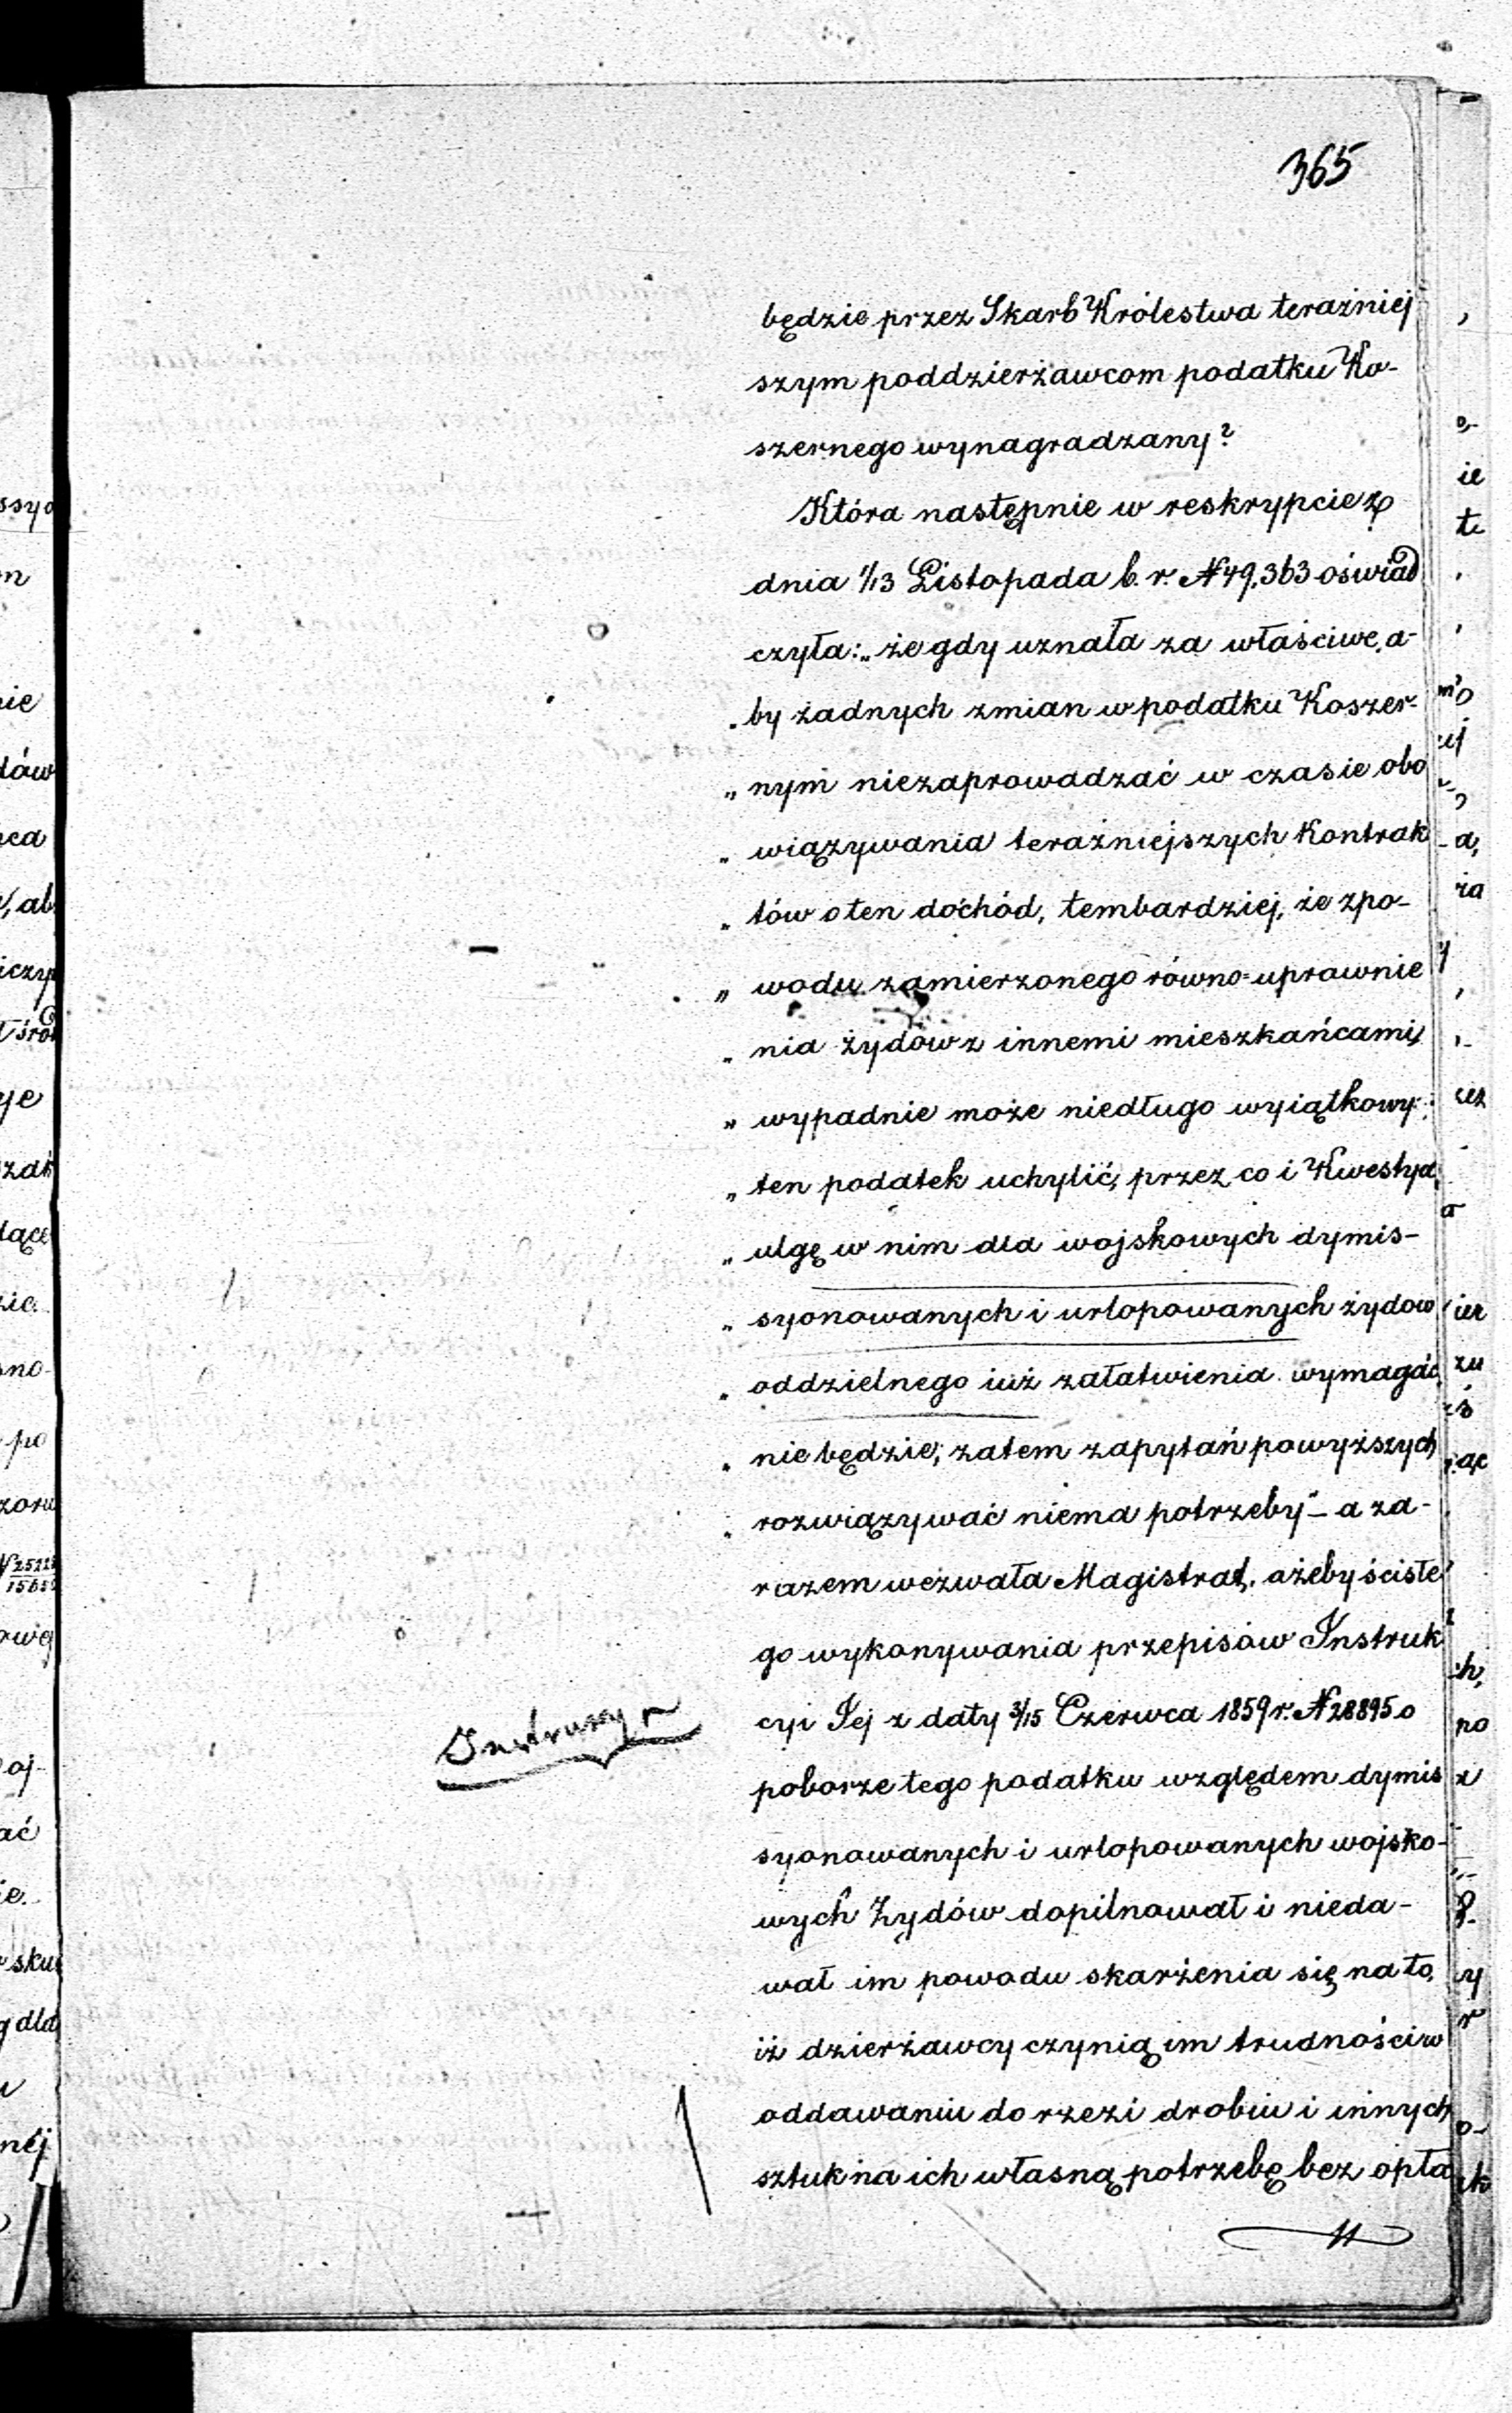 365
będzie przez Skarb Królestwa teraźniej
szym poddzierżawcom podatku Ko-
szernego wynagradzany?
Która następnie w reskrypcie z
dnia 1/13 Listopada b. r. N 49,363 oświad
czyła: „że gdy uznała za właściwe, a-
„by żadnych zmian w podatku Koszer-
„nym niezaprowadzać w czasie obo
„wiązywania teraźniejszych Kontrak
„tów o ten dochód, tembardziej, że zpo-
„wodu zamierzonego równo=uprawnie
„nia żydów z innemi mieszkańcami,
„wypadnie może niedługo wyiątkowy
„ten podatek uchylić, przez co i Kwestya
„ulgę w nim dla wojskowych dymis-
„syonowanych i urlopowanych żydow
„oddzielnego iuż załatwienia wymagać
„nie będzie; zatem zapytań powyższych
„rozwiązywać niema potrzeby" – a za-
razem wezwała Magistrat, ażeby ściśle
go wykonywania przepisów Instruk
cyi Jej z daty 3/15 Czerwca 1859 r. N 28895 o
poborze tego podatku względem dymis
syonowanych i urlopowanych wojsko-
wych Żydów dopilnował i nieda-
wał im powodu skarżenia się na to,
iż dzierżawcy czynią im trudności w
oddawaniu do rzezi drobiu i innych
sztuk na ich własną potrzebę bez opła